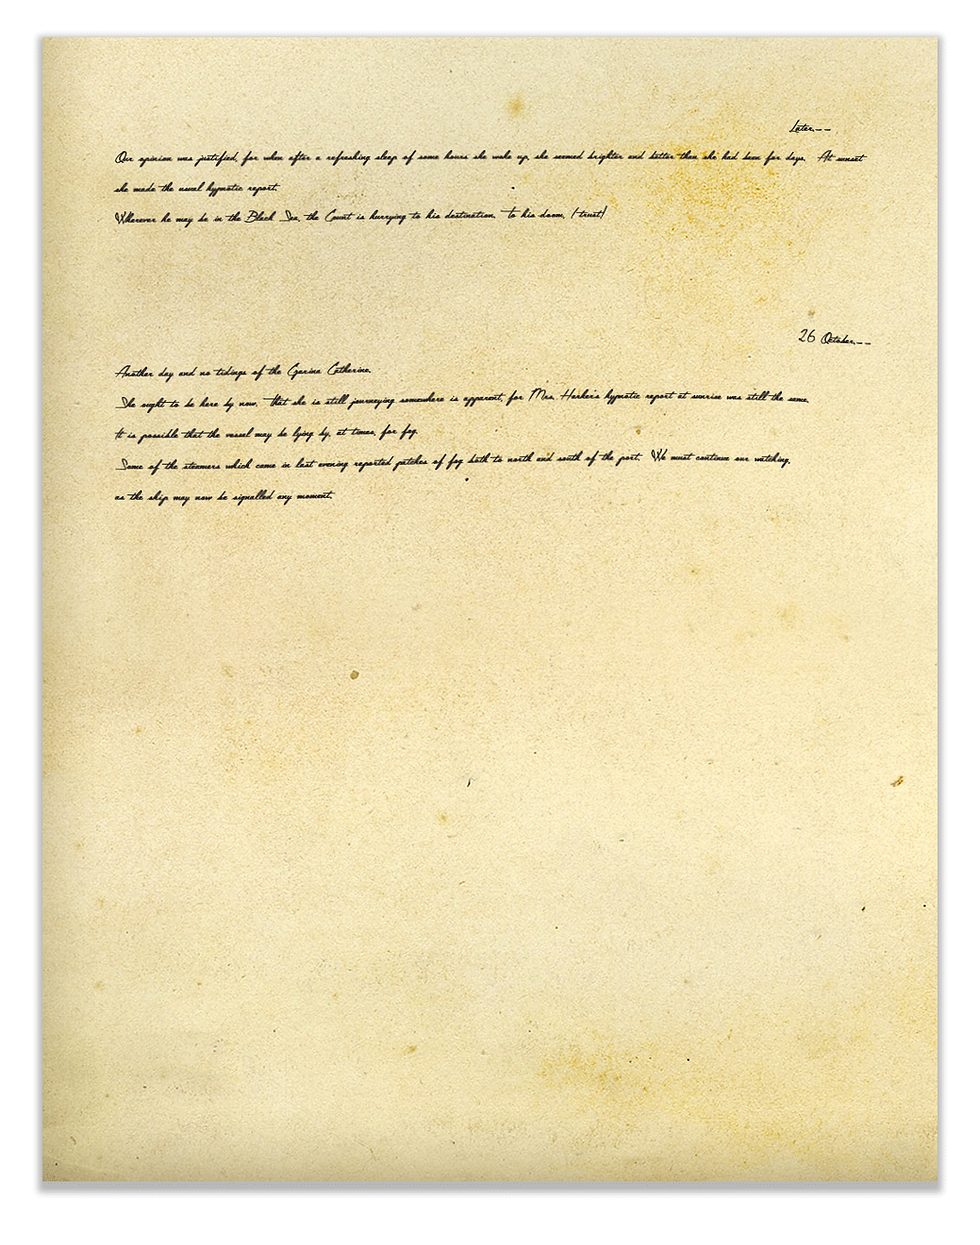 Later.--
Our opinion was justified, for when after a refreshing sleep of some hours she woke up, she seemed brighter and better than she had been for days. At sunset
she made the usual hypnotic report.
Wherever he may be in the Black Sea, the Count is hurrying to his destination. To his doom, I trust!
26 October.--
Another day and no tidings of the Czarina Catherine.
She ought to be here by now. That she is still journeying somewhere is apparent, for Mrs. Harker's hypnotic report at sunrise was still the same.
It is possible that the vessel may be lying by, at times, for fog.
Some of the steamers which came in last evening reported patches of fog both to north and south of the port. We must continue our watching,
as the ship may now be signalled any moment.